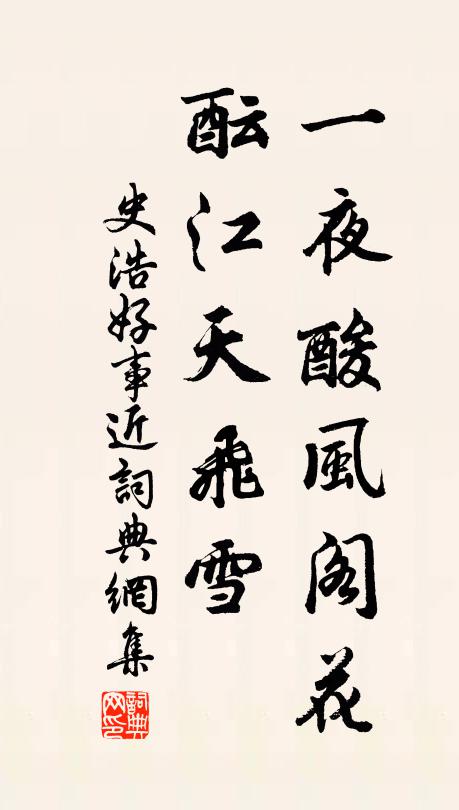 一夜酸風閣花
酝江天飛雪
史浩好事近詞典網集
詞典網印